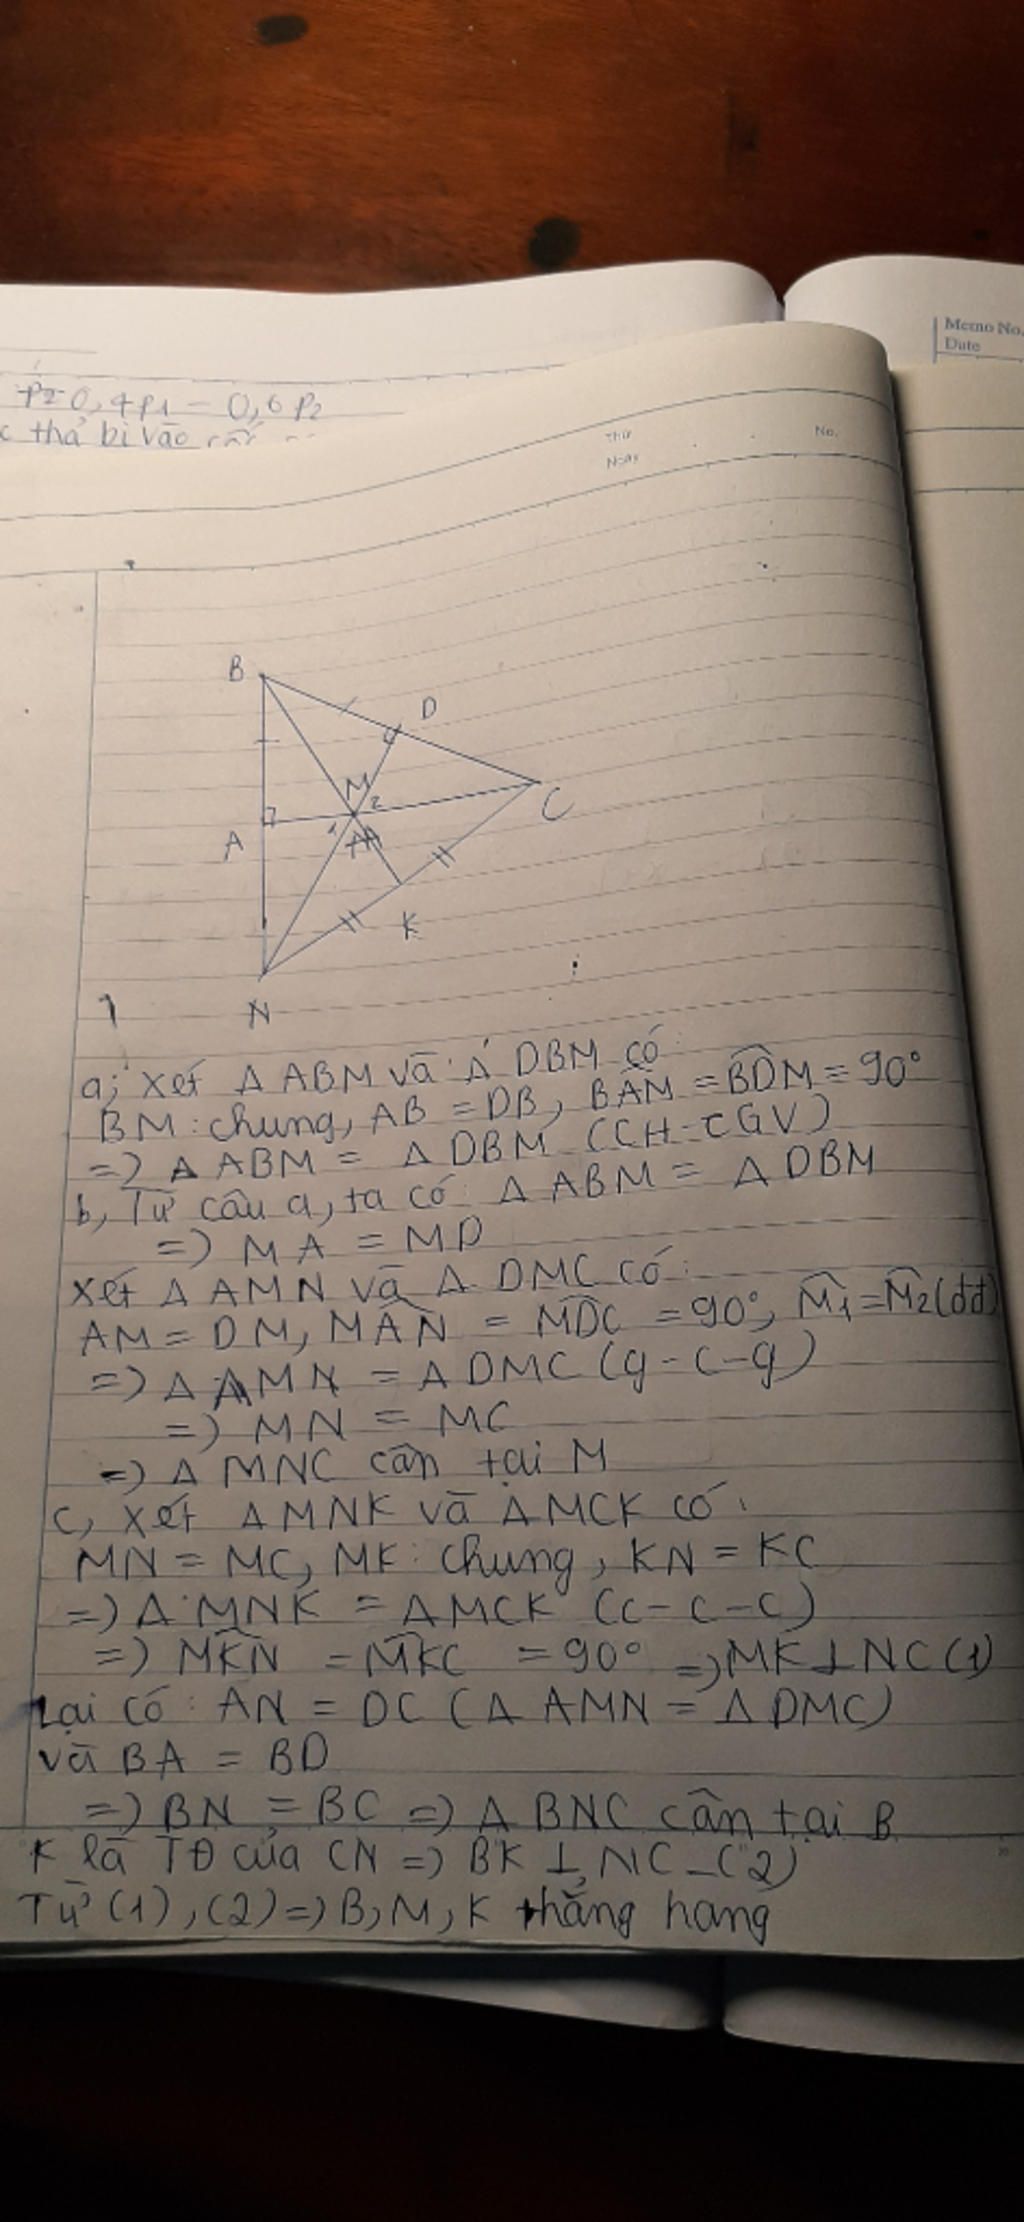 Memo No.
Date
P2 0,4P1 - 0,6 P2
thả bi vào
Thứ
No.
Ngày
B
D
M
2
C
A
1
K
N
a; xét Δ ABM và Δ DBM có:
BM: chung, AB = DB, BAM = BDM = 90°
=) Δ ABM = Δ DBM (CH-CGV)
b, Từ câu a, ta có: Δ ABM = Δ DBM
=) MA = MD
xét Δ AMN và Δ DMC có:
AM = DM, MAN = MDC = 90°, M1 = M2 (đđ)
=) Δ AMN = Δ DMC (g-c-g)
=) MN = MC
=) Δ MNC cân tại M
c, xét Δ MNK và Δ MCK có:
MN = MC, MK: chung, KN = KC
=) Δ MNK = Δ MCK (c-c-c)
=) MKN = MKC = 90° =) MK ⊥ NC (1)
Lại có: AN = DC (Δ AMN = Δ DMC)
và BA = BD
=) BN = BC =) Δ BNC cân tại B
K là TĐ của CN =) BK ⊥ NC - (2)
Từ (1), (2) =) B, M, K thẳng hang